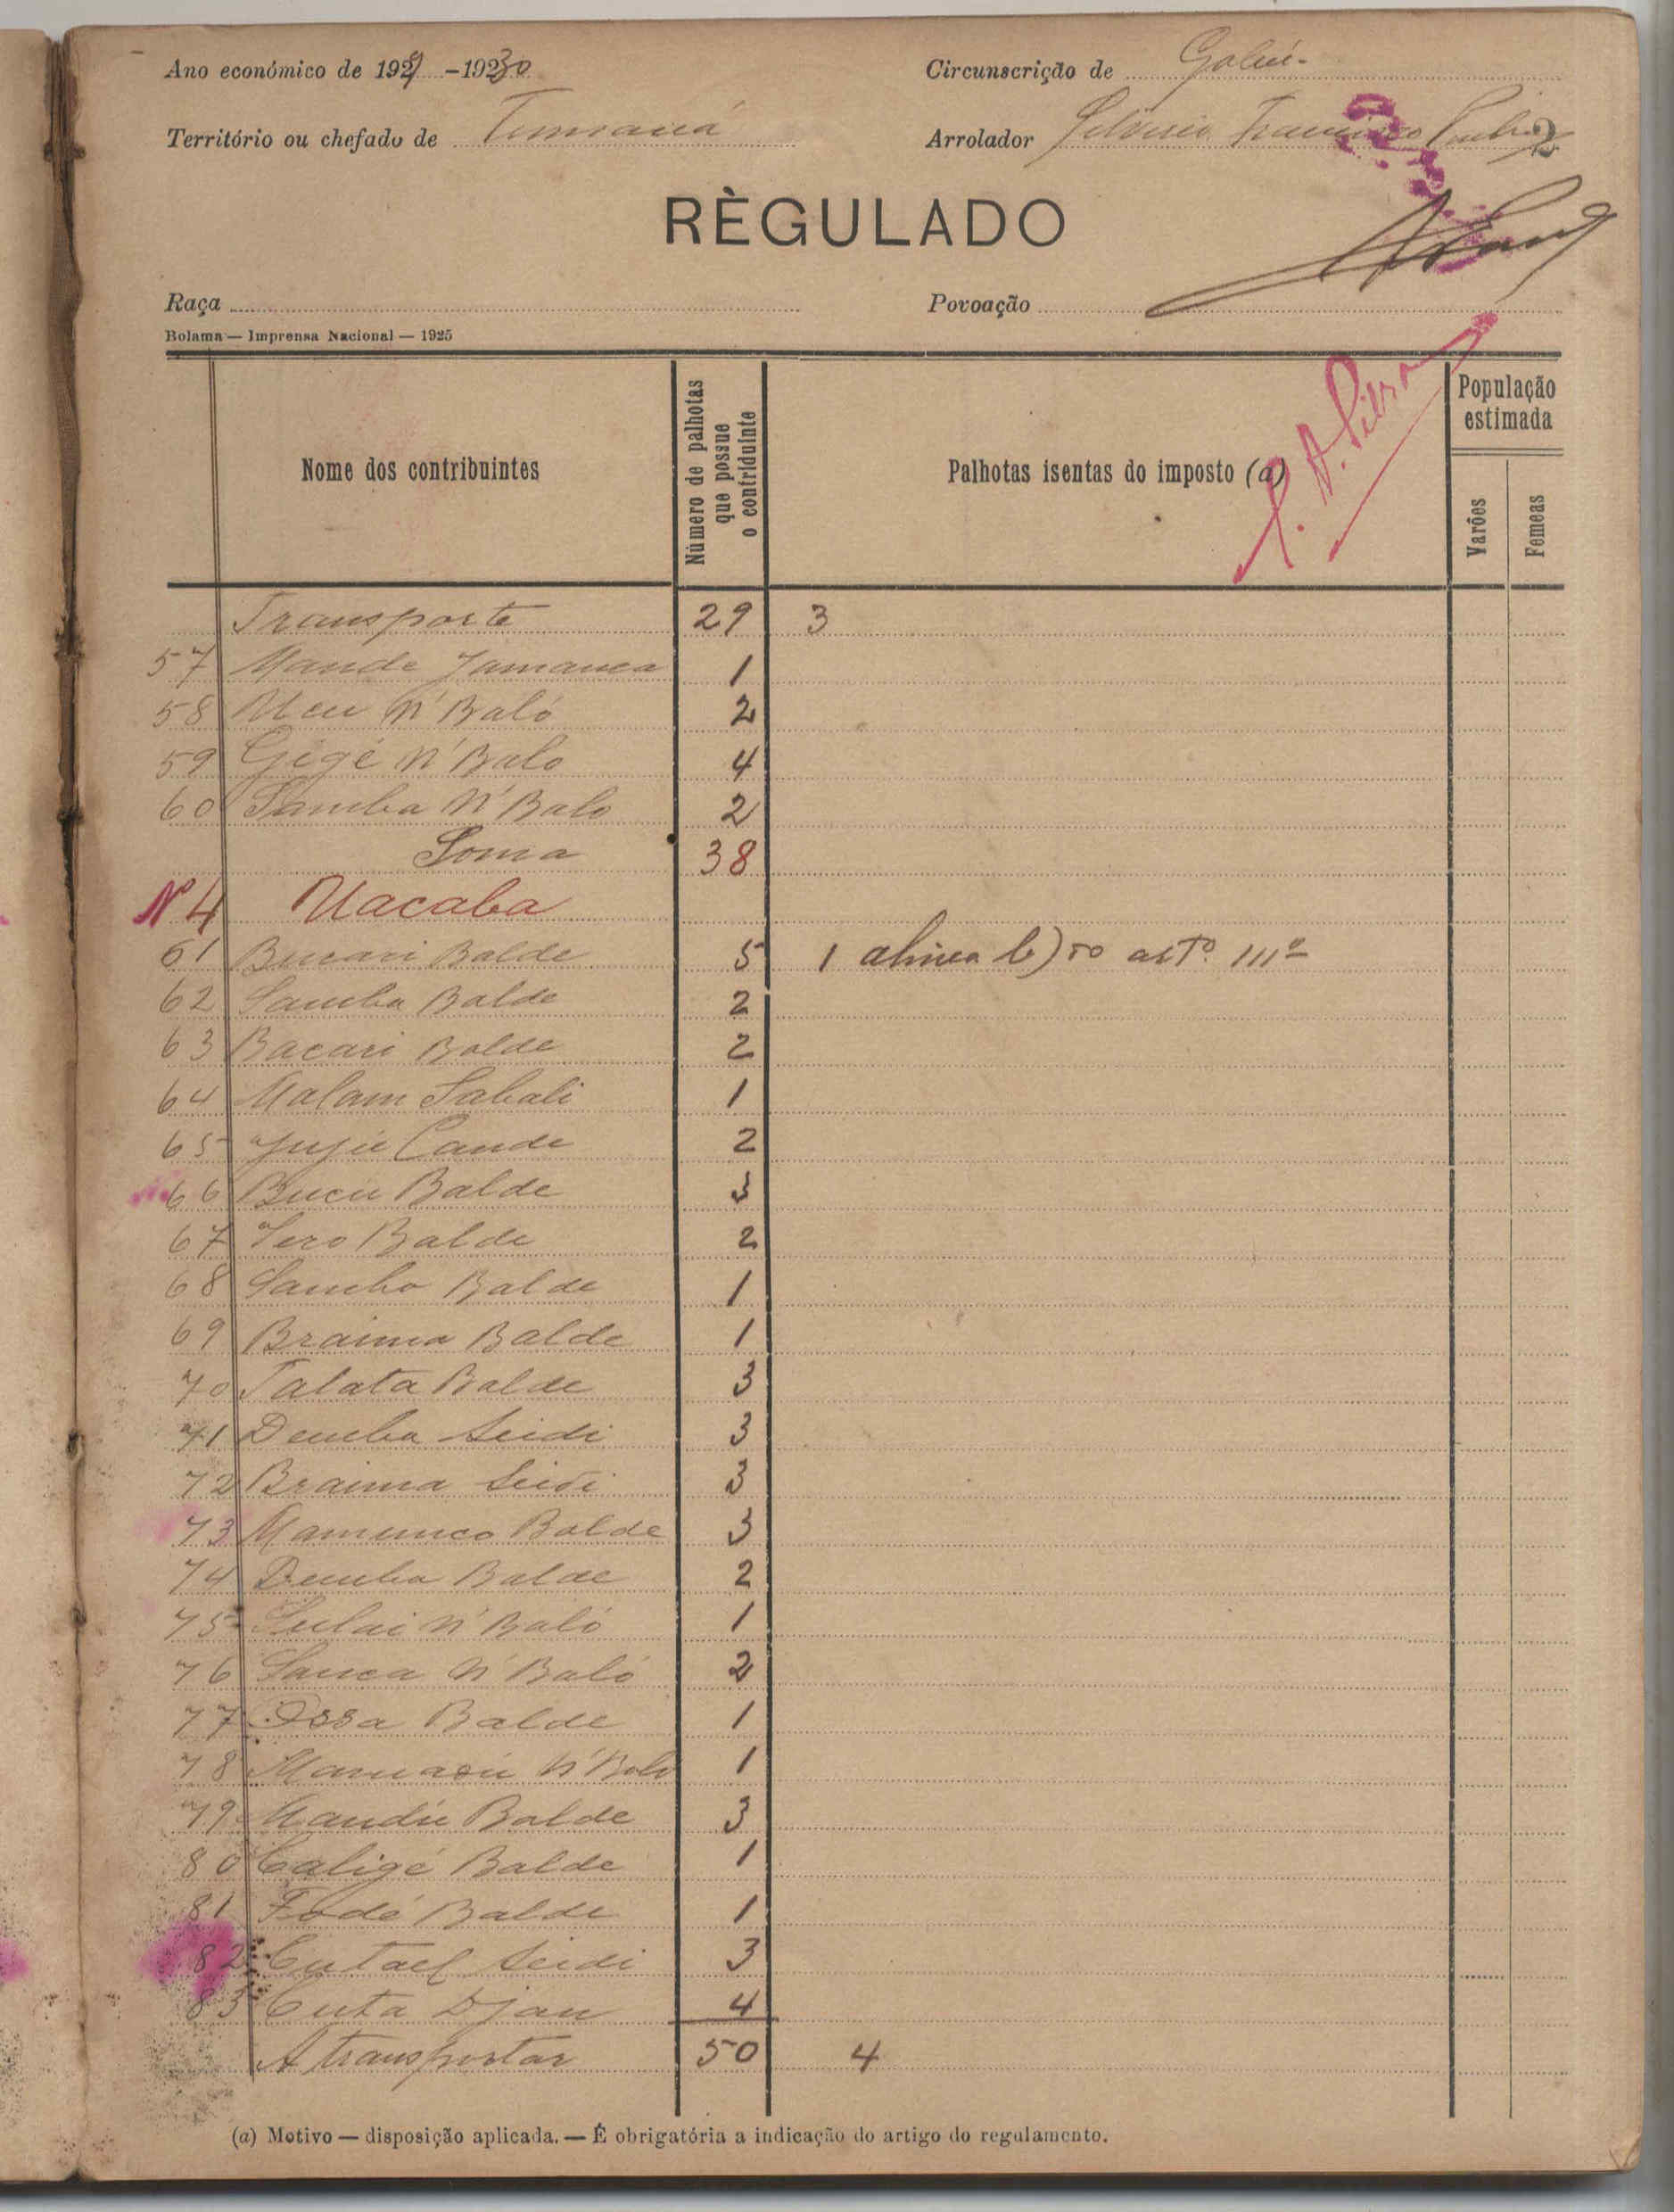 Ano económico de 1929 -1930
Circunscrição de Gabú-
Território ou chefado de Tumaná
Arrolador Francisco
2
RÈGULADO
Raça
Povoação
Bolama — Imprensa Nacional — 1925
Nome dos contribuintes
Número de palhotas que possue o contriduinte
Palhotas isentas do imposto (a)
População estimada
Varões
Femeas
Transporte 29 3
57 Mande Jamanca 1
58 N'Baló 2
59 Gigé N'Balo 4
60 Samba N'Balo 2
Soma 38
Nº 4 Uacaba
61 Bucari Balde 5 1 alinea b) do artº 111º
62 Samba Balde 2
63 Bacari Balde 2
64 Malam Sabali 1
65 Cande 2
66 Bucu Balde 3
67 Balde 2
68 Sambo Balde 1
69 Braima Balde 1
70 Talata Balde 3
71 Demba Seidi 3
72 Braima Seidi 3
73 Mamunco Balde 3
74 Demba Balde 2
75 N'Baló 1
76 Sanca N'Baló 2
77 Ossa Balde 1
78 Mamadú N'Balo 1
79 Balde 3
80 Caligé Balde 1
81 Fodé Balde 1
82 Seidi 3
83 Cuta Djau 4
A transportar 50 4
(a) Motivo — disposição aplicada. — É obrigatória a indicação do artigo do regulamento.